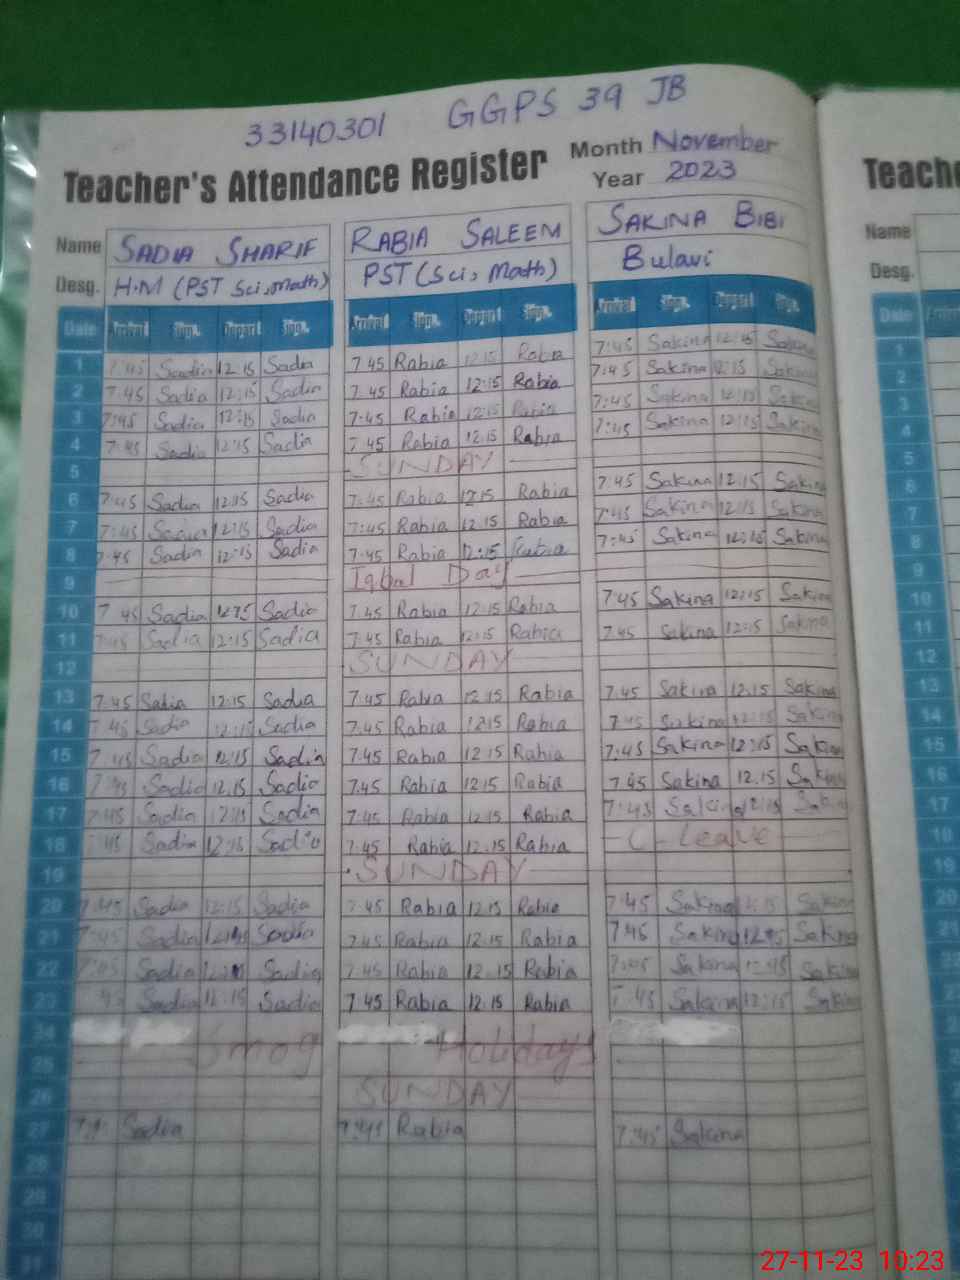 33140301 GGPS 39 JB
Teacher's Attendance Register Month November
Year 2023
Teache
Name SADIA SHARIF RABIA SALEEM SAKINA BIBI Name
Desg. H.M (PST Sci, math) PST (Sci, Math) Bulavi Desg.
Date Arrival Sign. Depart Sign. Arrival Sign. Depart Sign. Arrival Sign. Depart Sign. Date
1 7:45 Sadia 12:15 Sadia 7 45 Rabia 12:15 Rabia 7:45 Sakina 12:15 Sakina 1
2 7:45 Sadia 12:15 Sadia 7 45 Rabia 12:15 Rabia 7:45 Sakina 12:15 Sakina 2
3 7:45 Sadia 12:15 Sadia 7:45 Rabia 12:15 Rabia 7:45 Sakina 12:15 Sakina 3
4 7:45 Sadia 12:15 Sadia 7 45 Rabia 12.15 Rabia 7:45 Sakina 12:15 Sakina 4
5 SUNDAY 5
6 7:45 Sadia 12:15 Sadia 7:45 Rabia 12:15 Rabia 7:45 Sakina 12:15 Sakina 6
7 7:45 Sadia 12:15 Sadia 7:45 Rabia 12.15 Rabia 7:45 Sakina 12:15 Sakina 7
8 7:45 Sadia 12:15 Sadia 7.45 Rabia 12:15 Rabia 7:45 Sakina 12:15 Sakina 8
9 Iqbal Day 9
10 7 45 Sadia 12:15 Sadia 7.45 Rabia 12.15 Rabia 7:45 Sakina 12:15 Sakina 10
11 7:45 Sadia 12:15 Sadia 7.45 Rabia 12:15 Rabia 7:45 Sakina 12:15 Sakina 11
12 SUNDAY 12
13 7.45 Sadia 12:15 Sadia 7.45 Rabia 12 15 Rabia 7:45 Sakina 12.15 Sakina 13
14 7:45 Sadia 12:15 Sadia 7.45 Rabia 12:15 Rabia 7:45 Sakina 12:15 Sakina 14
15 7:45 Sadia 12:15 Sadia 7.45 Rabia 12 15 Rabia 7:45 Sakina 12:15 Sakina 15
16 7:45 Sadia 12.15 Sadia 7.45 Rabia 12.15 Rabia 7.45 Sakina 12.15 Sakina 16
17 7:45 Sadia 12:15 Sadia 7:45 Rabia 12.15 Rabia 7:45 Sakina 12:15 Sakina 17
18 7:45 Sadia 12:15 Sadia 7.45 Rabia 12.15 Rabia C-Leave 18
19 SUNDAY 19
20 7:45 Sadia 12:15 Sadia 7:45 Rabia 12.15 Rabia 7:45 Sakina 12:15 Sakina 20
21 7:45 Sadia Sadia 7:45 Rabia 12.15 Rabia 7:45 Sakina 12:15 Sakina 21
22 7:45 Sadia Sadia 7:45 Rabia 12.15 Rabia 7:45 Sakina 12:15 Sakina 22
23 45 Sadia 12:15 Sadia 7 45 Rabia 12.15 Rabia 7:45 Sakina 12:15 Sakina 2
24
25 Smog Holidays
26 SUNDAY
27 Sadia 7:45 Rabia 7:45 Sakina
28
29
30
31
27-11-23 10:23